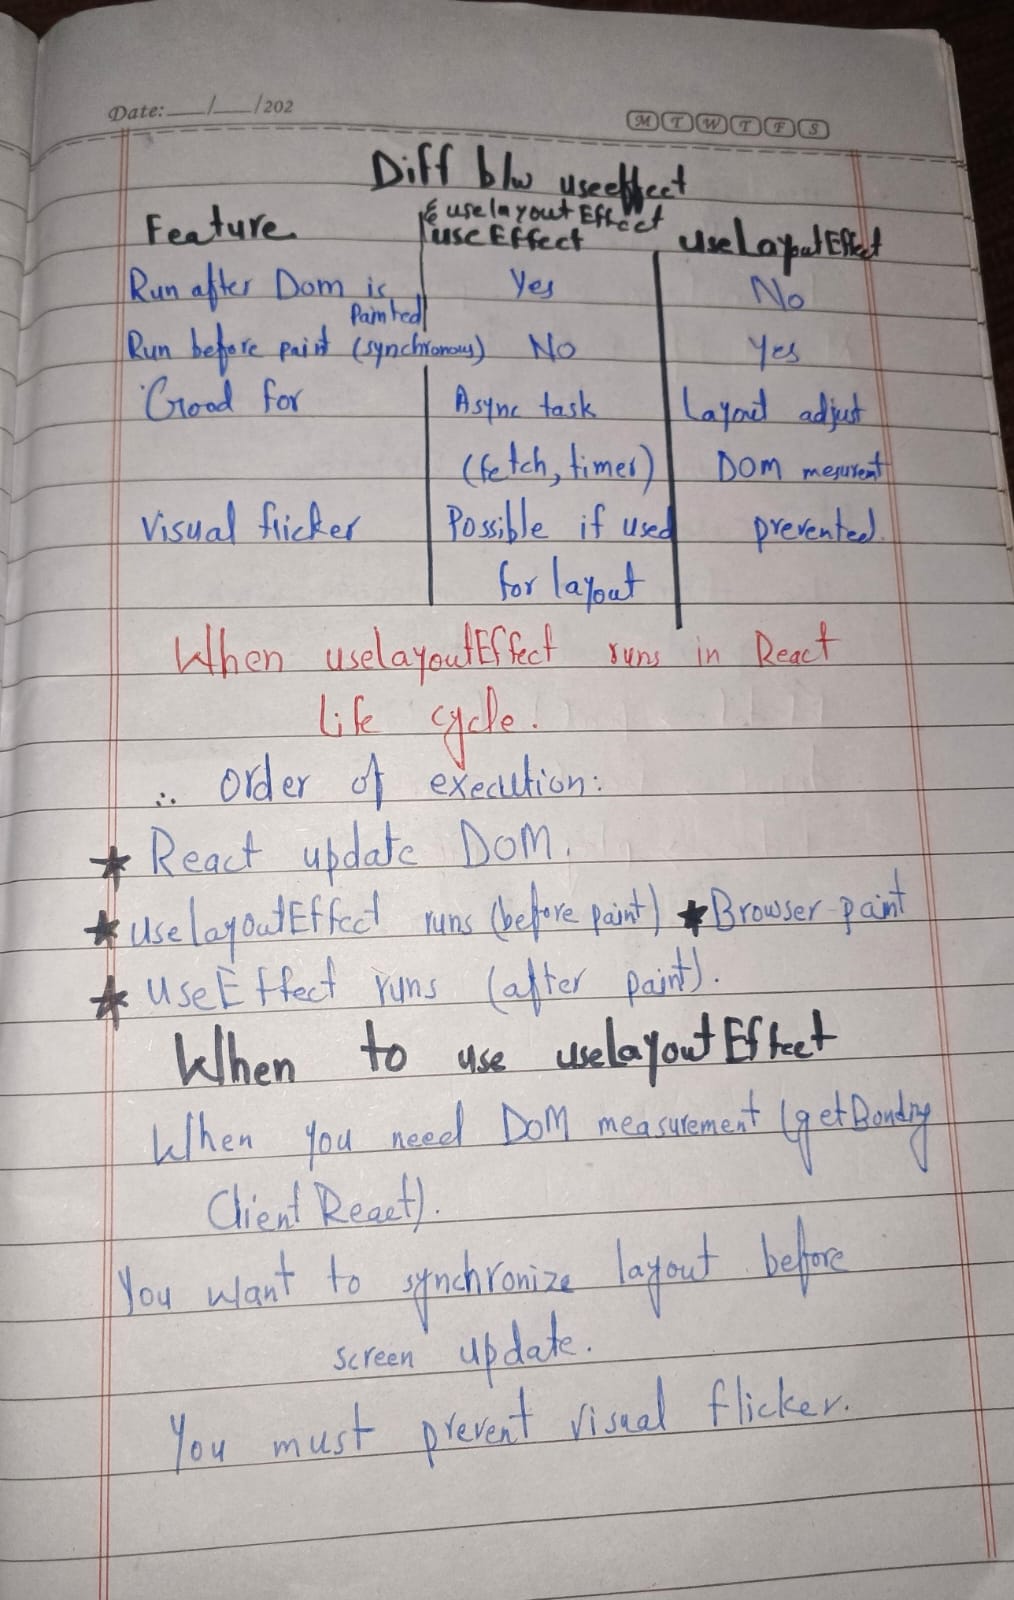 Date: ___/___/202
M T W T F S
Diff b/w useeffect
& uselayoutEffect
Feature useEffect useLayoutEffect
Run after Dom is Painted Yes No
Run before paint (synchronous) No Yes
Good for Async task Layout adjust
(fetch, timer) DOM mesurent
Visual flicker Possible if used prevented.
for layout
When uselayoutEffect runs in React
life cycle.
∴ order of execution:
★ React update DOM.
★ uselayoutEffect runs (before paint) ★ Browser paint
★ useEffect runs (after paint).
When to use uselayoutEffect
When you need DOM measurement (getBonding
Client React).
You want to synchronize layout before
screen update.
You must prevent visual flicker.